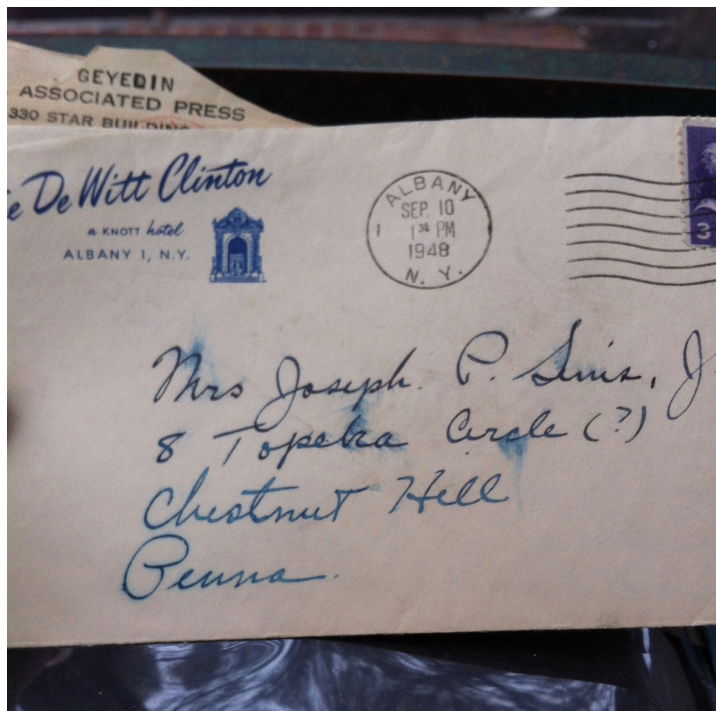 GEYEDIN
ASSOCIATED PRESS
330 STAR BUILDING
e De Witt Clinton
a KNOTT hotel
ALBANY 1, N.Y.
ALBANY
SEP. 10
1 1 30 PM
1948
N. Y.
3
Mrs Joseph. P. Sims, J
8 Topeka Circle (?)
Chestnut Hill
Penna.